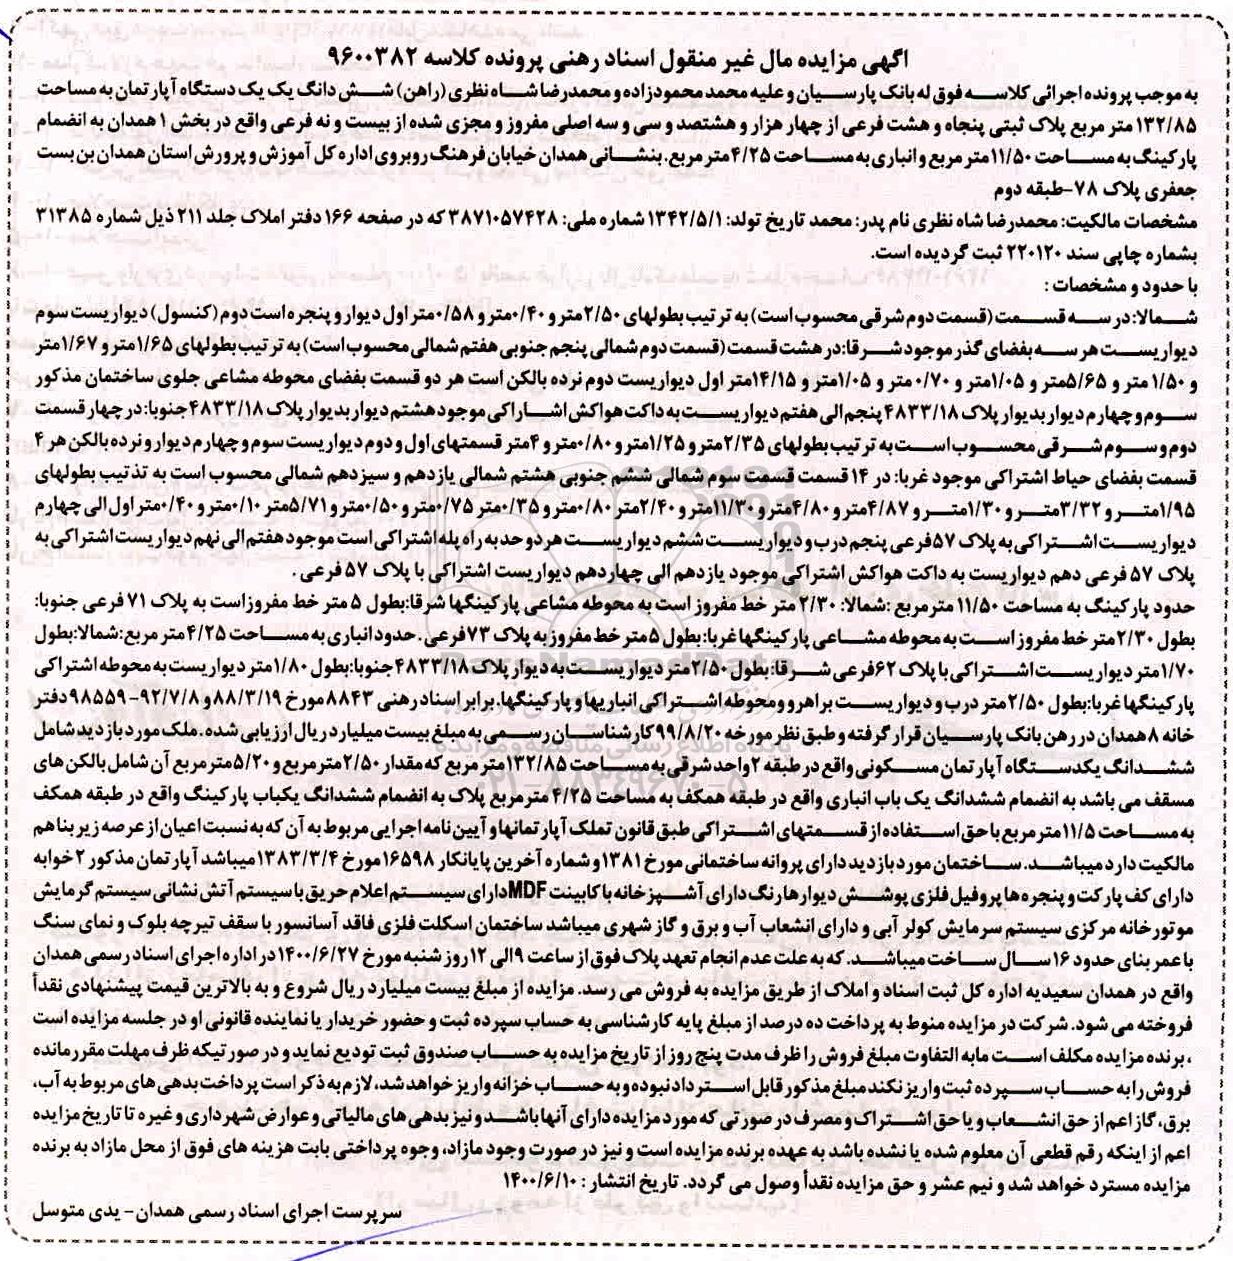 اگهی مزایده مال غیر منقول اسناد رهنی پرونده کلاسه ۹۶۰۰۳۸۲
به موجب پرونده اجرائی کلاسه فوق له بانک پارسیان و علیه محمد محمودزاده و محمدرضا شاه نظری (راهن) شش دانگ یک یک دستگاه آپارتمان به مساحت
۱۳۲/۸۵ متر مربع پلاک ثبتی پنجاه و هشت فرعی از چهار هزار و هشتصد و سی و سه اصلی مفروز و مجزی شده از بیست و نه فرعی واقع در بخش ۱ همدان به انضمام
پارکینگ به مساحت ۱۱/۵۰متر مربع و انباری به مساحت ۴/۲۵متر مربع. بنشانی همدان خیابان فرهنگ روبروی اداره کل آموزش و پرورش استان همدان بن بست
جعفری پلاک ۷۸-طبقه دوم
مشخصات مالکیت: محمدرضا شاه نظری نام پدر: محمد تاریخ تولد: ۱۳۴۲/۵/۱ شماره ملی: ۳۸۷۱۰۵۷۴۲۸ که در صفحه ۱۶۶ دفتر املاک جلد ۲۱۱ ذیل شماره ۳۱۳۸۵
بشماره چاپی سند ۲۲۰۱۲۰ ثبت گردیده است.
با حدود و مشخصات :
شمالا: در سه قسمت (قسمت دوم شرقی محسوب است) به ترتیب بطولهای ۲/۵۰متر و ۰/۴۰متر و ۰/۵۸متر اول دیوار و پنجره است دوم (کنسول) دیواریست سوم
دیواریست هر سه بفضای گذر موجود شرقا: در هشت قسمت (قسمت دوم شمالی پنجم جنوبی هفتم شمالی محسوب است) به ترتیب بطولهای ۱/۶۵متر و ۱/۶۷متر
و ۱/۵۰ متر و ۵/۶۵متر و ۱/۰۵متر و ۰/۷۰ متر و ۱/۰۵متر و ۱۴/۱۵متر اول دیواریست دوم نرده بالکن است هر دو قسمت بفضای محوطه مشاعی جلوی ساختمان مذکور
سوم و چهارم دیوار بدیوار پلاک ۴۸۳۳/۱۸ پنجم الی هفتم دیواریست به داکت هواکش اشتراکی موجود هشتم دیوار بدیوار پلاک ۴۸۳۳/۱۸ جنوبا: در چهار قسمت
دوم و سوم شرقی محسوب است به ترتیب بطولهای ۲/۳۵متر و ۱/۲۵متر و ۰/۸۰متر و ۴متر قسمتهای اول و دوم دیواریست سوم و چهارم دیوار و نرده بالکن هر ۴
قسمت بفضای حیاط اشتراکی موجود غربا: در ۱۴ قسمت قسمت سوم شمالی ششم جنوبی هشتم شمالی یازدهم و سیزدهم شمالی محسوب است به تذتیب بطولهای
۱/۹۵متر و ۳/۳۲متر و ۱/۳۰متر و ۴/۸۷متر و ۴/۸۰متر و ۱۱/۳۰متر و ۲/۴۰متر ۰/۸۰متر و ۰/۳۵متر ۰/۷۵متر و ۰/۵۰متر و ۵/۷۱متر ۰/۱۰متر و ۰/۴۰متر اول الی چهارم
دیواریست اشتراکی به پلاک ۵۷فرعی پنجم درب و دیواریست ششم دیواریست هر دو حد به راه پله اشتراکی است موجود هفتم الی نهم دیواریست اشتراکی به
پلاک ۵۷ فرعی دهم دیواریست به داکت هواکش اشتراکی موجود یازدهم الی چهاردهم دیواریست اشتراکی با پلاک ۵۷ فرعی .
حدود پارکینگ به مساحت ۱۱/۵۰ مترمربع :شمالا: ۲/۳۰ متر خط مفروز است به محوطه مشاعی پارکینگها شرقا:بطول ۵ متر خط مفروزاست به پلاک ۷۱ فرعی جنوبا:
بطول ۲/۳۰متر خط مفروز است به محوطه مشاعی پارکینگها غربا: بطول ۵ متر خط مفروز به پلاک ۷۳فرعی . حدود انباری به مساحت ۴/۲۵متر مربع:شمالا:بطول
۱/۷۰متر دیواریست اشتراکی با پلاک ۶۲فرعی شرقا: بطول ۲/۵۰متر دیواریست به دیوار پلاک ۴۸۳۳/۱۸ جنوبا: بطول ۱/۸۰متر دیواریست به محوطه اشتراکی
پارکینگها غربا:بطول ۲/۵۰متر درب و دیواریست براهرو و محوطه اشتراکی انباریها و پارکینگها. برابر اسناد رهنی ۸۸۴۳ مورخ ۸۸/۳/۱۹و ۹۲/۷/۸-۹۸۵۵۹دفتر
خانه ۸ همدان در رهن بانک پارسیان قرار گرفته و طبق نظر مورخه ۹۹/۸/۲۰ کارشناسان رسمی به مبلغ بیست میلیارد ریال ارزیابی شده. ملک مورد بازدید شامل
ششدانگ یکدستگاه آپارتمان مسکونی واقع در طبقه ۲واحد شرقی به مساحت ۱۳۲/۸۵ متر مربع که مقدار ۲/۵۰مترمربع و ۵/۲۰مترمربع آن شامل بالکن های
مسقف می باشد به انضمام ششدانگ یک باب انباری واقع در طبقه همکف به مساحت ۴/۲۵ مترمربع پلاک به انضمام ششدانگ یکباب پارکینگ واقع در طبقه همکف
به مساحت ۱۱/۵متر مربع با حق استفاده از قسمتهای اشتراکی طبق قانون تملک آپارتمانها و آیین نامه اجرایی مربوط به آن که به نسبت اعیان از عرصه زیر بنا هم
مالکیت دارد میباشد. ساختمان مورد بازدید دارای پروانه ساختمانی مورخ ۱۳۸۱و شماره آخرین پایانکار ۱۶۵۹۸مورخ ۱۳۸۳/۳/۴ میباشد آپارتمان مذکور ۲خوابه
دارای کف پارکت و پنجره ها پروفیل فلزی پوشش دیوارها رنگ دارای آشپزخانه با کابینت MDFدارای سیستم اعلام حریق با سیستم آتش نشانی سیستم گرمایش
موتورخانه مرکزی سیستم سرمایش کولر آبی و دارای انشعاب آب و برق و گاز شهری میباشد ساختمان اسکلت فلزی فاقد آسانسور با سقف تیرچه بلوک و نمای سنگ
با عمر بنای حدود ۱۶ سال ساخت میباشد. که به علت عدم انجام تعهد پلاک فوق از ساعت ۹الی ۱۲ روز شنبه مورخ ۱۴۰۰/۶/۲۷ در اداره اجرای اسناد رسمی همدان
واقع در همدان سعیدیه اداره کل ثبت اسناد و املاک از طریق مزایده به فروش می رسد. مزایده از مبلغ بیست میلیارد ریال شروع و به بالاترین قیمت پیشنهادی نقداً
فروخته می شود. شرکت در مزایده منوط به پرداخت ده درصد از مبلغ پایه کارشناسی به حساب سپرده ثبت و حضور خریدار یا نماینده قانونی او در جلسه مزایده است
، برنده مزایده مکلف است مابه التفاوت مبلغ فروش را ظرف مدت پنج روز از تاریخ مزایده به حساب صندوق ثبت تودیع نماید و در صورتیکه ظرف مهلت مقرر مانده
فروش را به حساب سپرده ثبت واریز نکند مبلغ مذکور قابل استرداد نبوده و به حساب خزانه واریز خواهد شد، لازم به ذکر است پرداخت بدهی های مربوط به آب،
برق، گاز اعم از حق انشعاب و یا حق اشتراک و مصرف در صورتی که مورد مزایده دارای آنها باشد و نیز بدهی های مالیاتی و عوارض شهرداری و غیره تا تاریخ مزایده
اعم از اینکه رقم قطعی آن معلوم شده یا نشده باشد به عهده برنده مزایده است و نیز در صورت وجود مازاد، وجوه پرداختی بابت هزینه های فوق از محل مازاد به برنده
مزایده مسترد خواهد شد و نیم عشر و حق مزایده نقداً وصول می گردد. تاریخ انتشار : ۱۴۰۰/۶/۱۰
سرپرست اجرای اسناد رسمی همدان- یدی متوسل